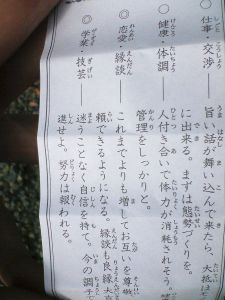 ○仕事・交渉――旨い話が舞い込んで来たら、大抵は
に出来る。まずは態勢づくりを。
○健康・体調――人付き合いで体力が消耗されそう。
管理をしっかりと。
◎恋愛・縁談――これまでよりも増してお互いを尊敬
頼できるようになる。縁談も良縁
◎学業・技芸――迷うことなく自信を持て。今の調子
進せよ。努力は報われる。